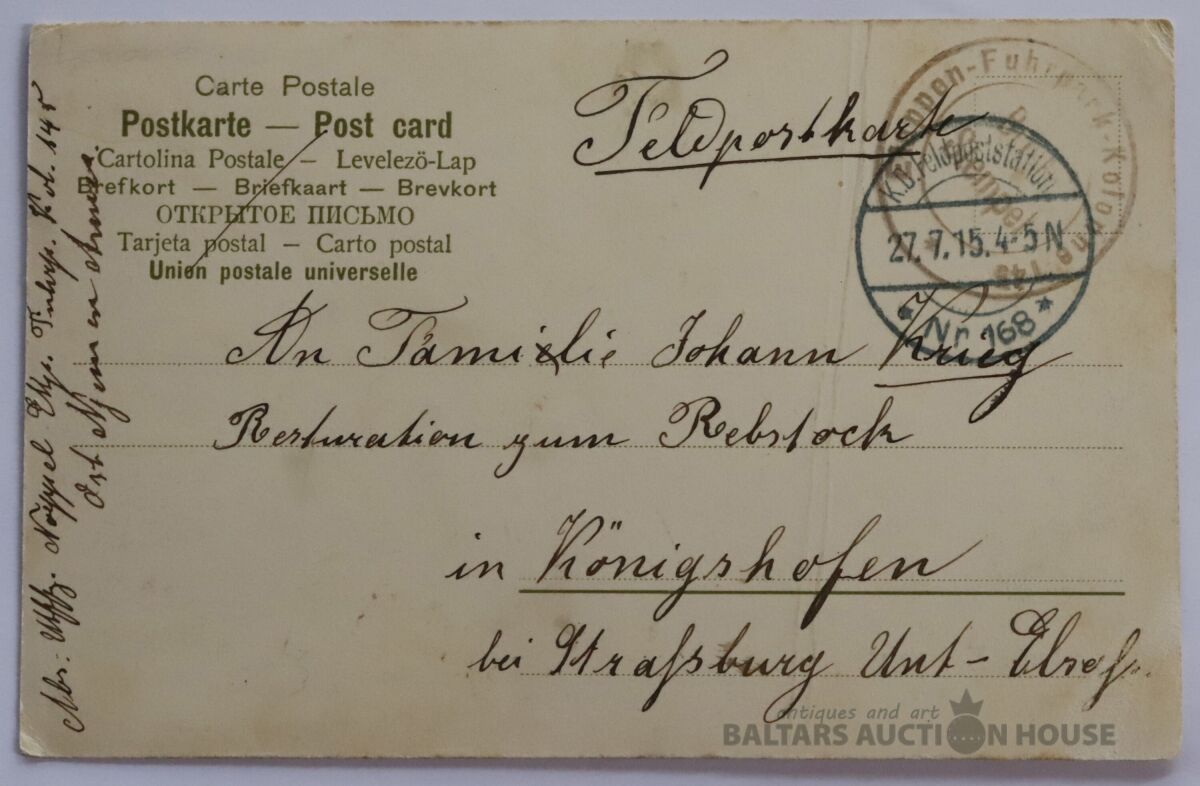 Carte Postale
Postkarte — Post card
Cartolina Postale – Levelezö-Lap
Brefkort — Briefkaart — Brevkort
ОТКРЫТОЕ ПИСЬМО
Tarjeta postal – Carto postal
Union postale universelle
Feldpostkarte
Etappen-Fuhrpark-Kolonne 145
K.D. Feldpoststation
27.7.15. 4-5 N
* Nr. 168 *
An Familie Johann Krieg
Resturation zum Rebstock
in Königshofen
bei Straßburg Unt-Elsaß.
Abs: Uffz. Noppel Etp. Fuhrp. Kol. 145
Ost Njemen Armee.
antiques and art
BALTARS AUCTION HOUSE